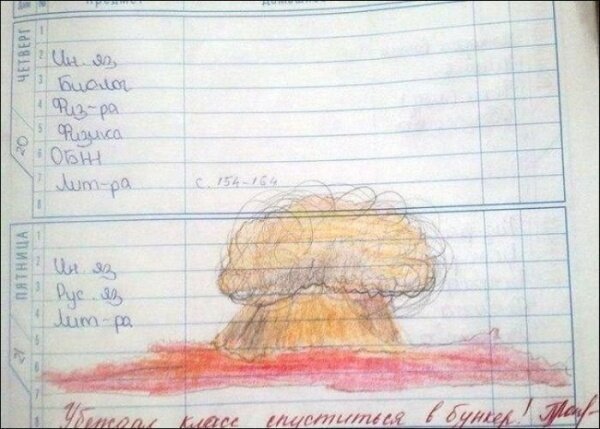 № ПРЕДМЕТ
ЧЕТВЕРГ
20
1
2 Ин. яз
3 Биолог
4 Физ-ра
5 Физика
6 ОБЖ
7 Лит-ра с. 154-164
8
ПЯТНИЦА
21
1
2 Ин. яз
3 Рус. яз
4 Лит-ра
5
6
7
8 Убеждал класс спуститься в бункер!